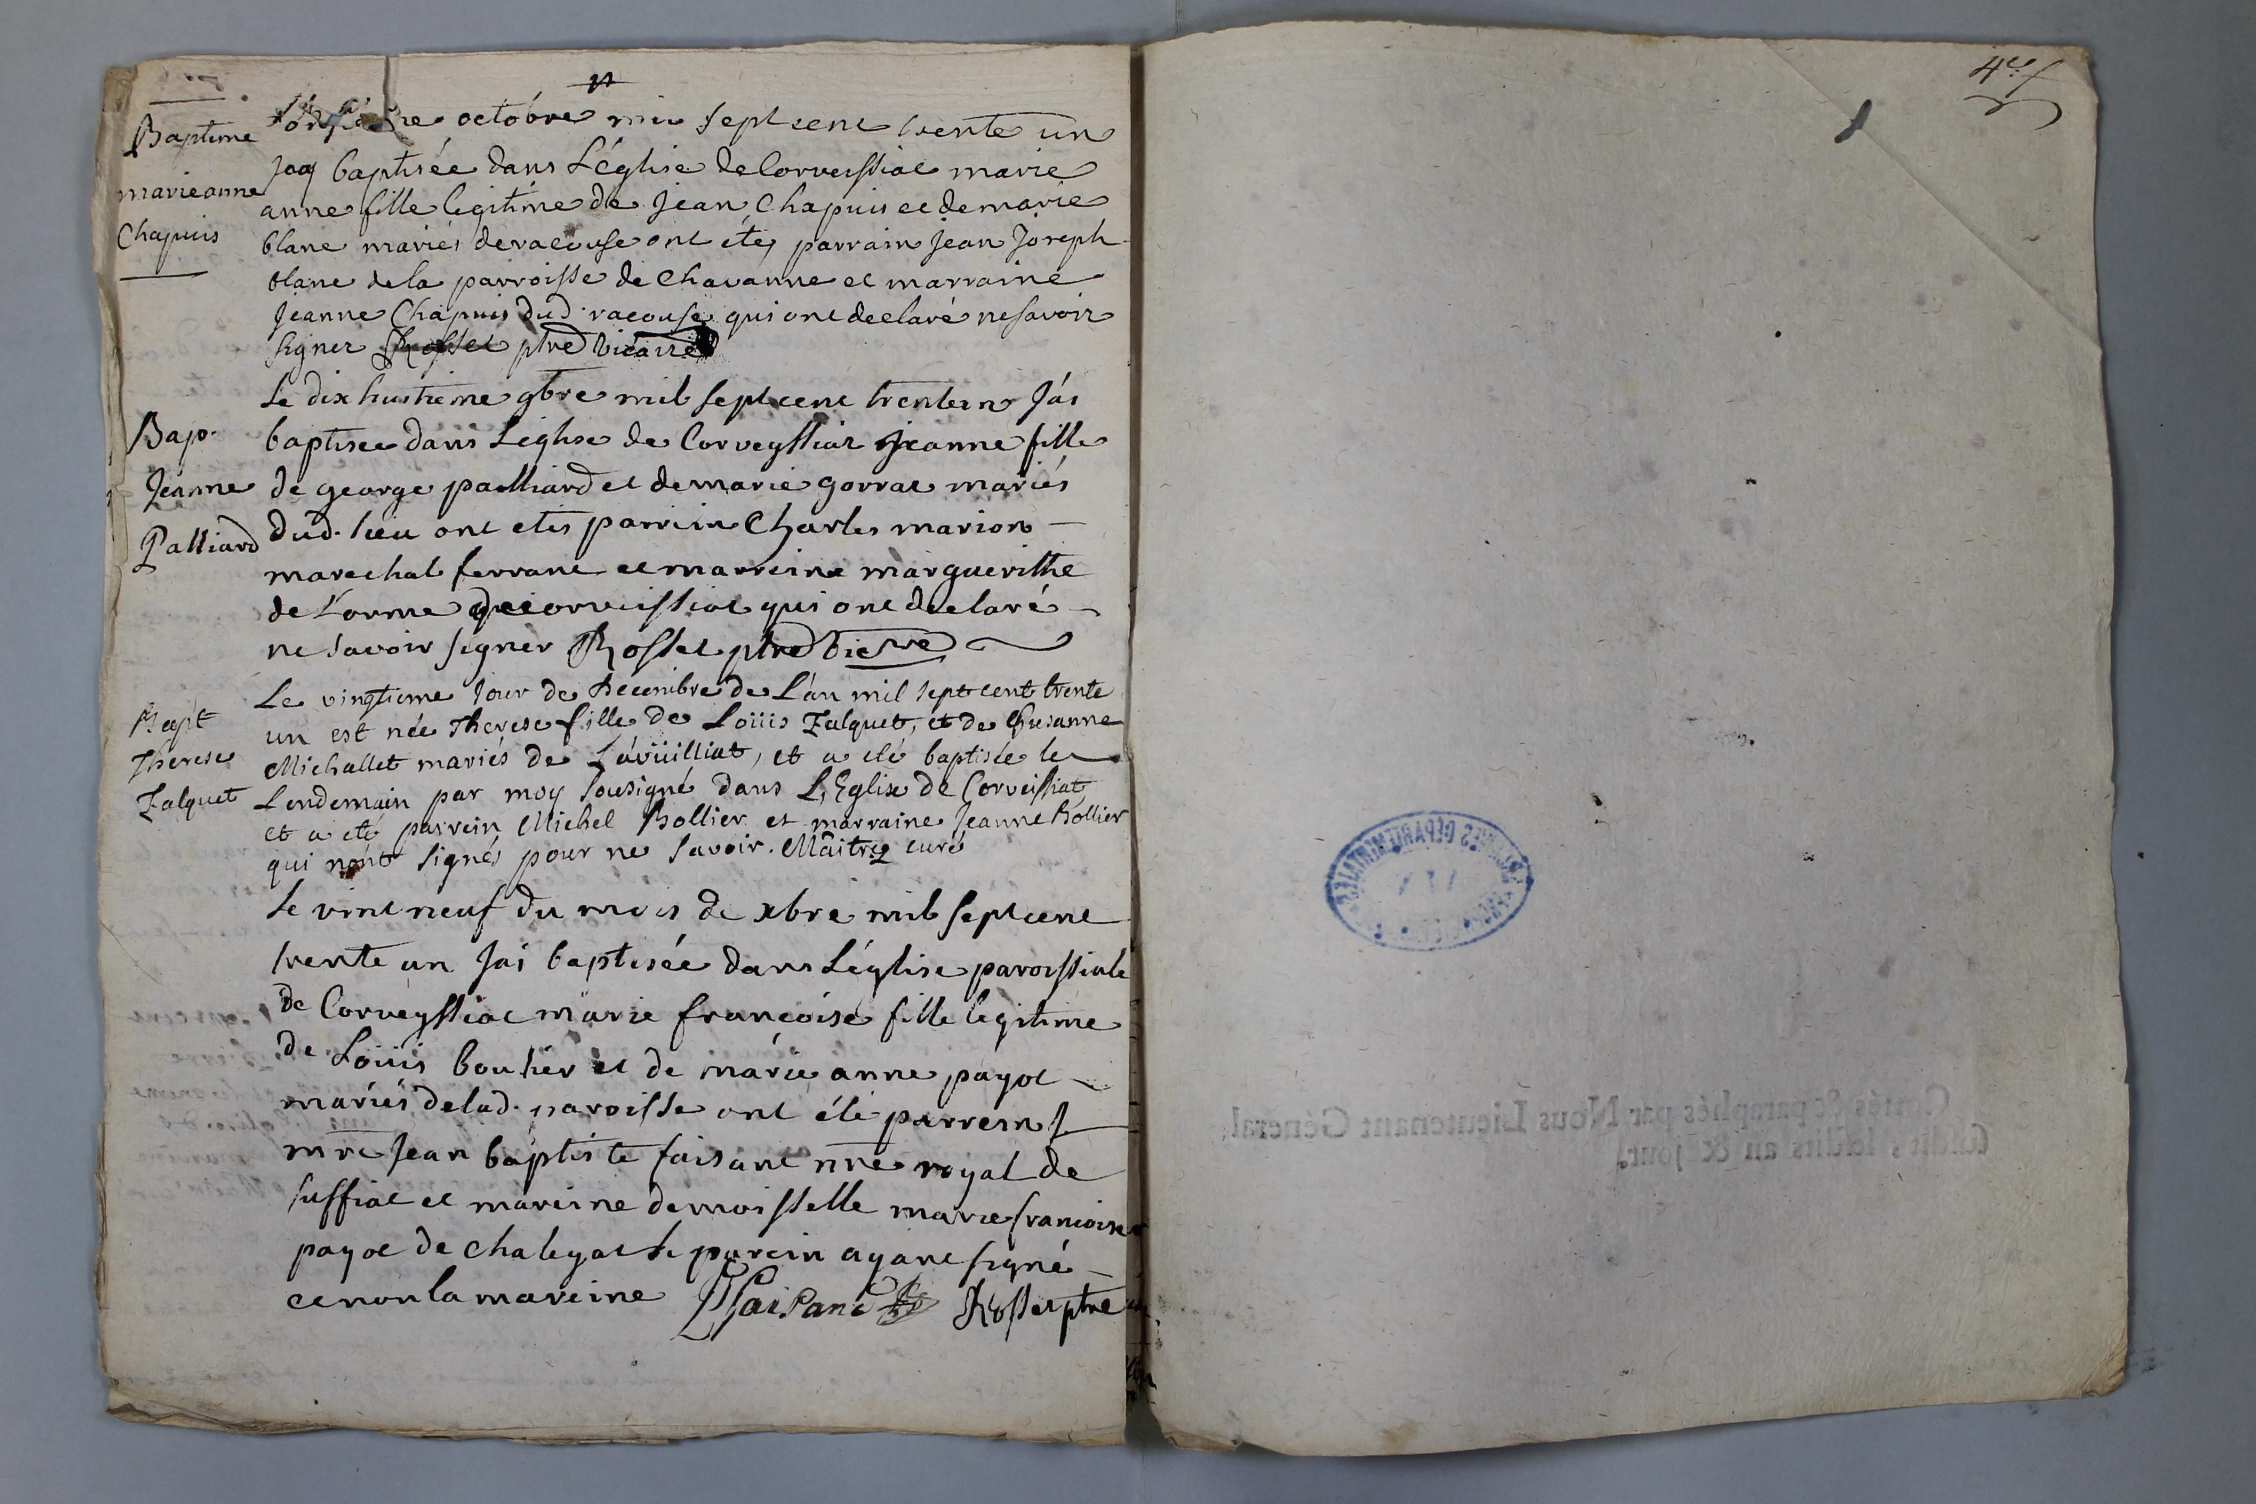 Bapteme
marie anne
Chapuis
octobre mil sept cent trente un
Jay baptisée dans L'église de Corveissiat marie
anne fille legitime de Jean Chapuis et de marie
blanc mariés de racouse ont étés parrain Jean Joseph
blanc de la parroisse de Chavanne et marraine
Jeanne Chapuis dud. racouse qui ont declaré ne savoir
signer Rosset ptre vicaire
Bap.
Jeanne
Palliard
Le dix huitieme 9bre mil sept cent trente un Jai
baptisee dans Leglise de Corveyssiat Jeanne fille
de george palliard et de marie gorrat mariés
dud. lieu ont etés parrein Charles marion
marechal ferrant et marreine marguerithe
de Lorme de corveissiat qui ont declaré
ne savoir signer Rosset ptre vicre
Bapt
Therese
Falquet
Le vingtieme Jour de Decembre de L'an mil sept cent trente
un est née Therese fille de Loüis Falquet, et de Susanne
Michallet mariés de Lavüilliat, et a eté baptisée le
Lendemain par moy sousigné dans L'Eglise de Corveissiat
et a eté parrein Michel Bollier et marraine Jeanne Bollier
qui n'ont signés pour ne savoir. Maitre curé
Le vint neuf du mois de xbre mil sept cent
trente un Jai baptisée dans Léglise paroissiale
de Corveyssiat marie françoise fille legitime
de Loüis bouhier et de marie anne payot
mariés de lad. paroisse ont été parrein
mre Jean baptiste faisant nre royal de
suffiat et mareine demoisselle marie francoise
payot de chaleyat le parein ayant signé
et non la mareine Faisant Rosset ptre
4e
ARCHIVES DEPARTEMENTALES
AIN
Cottés & paraphés par Nous Lieutenant General,
susdit, lesdits an & jour.